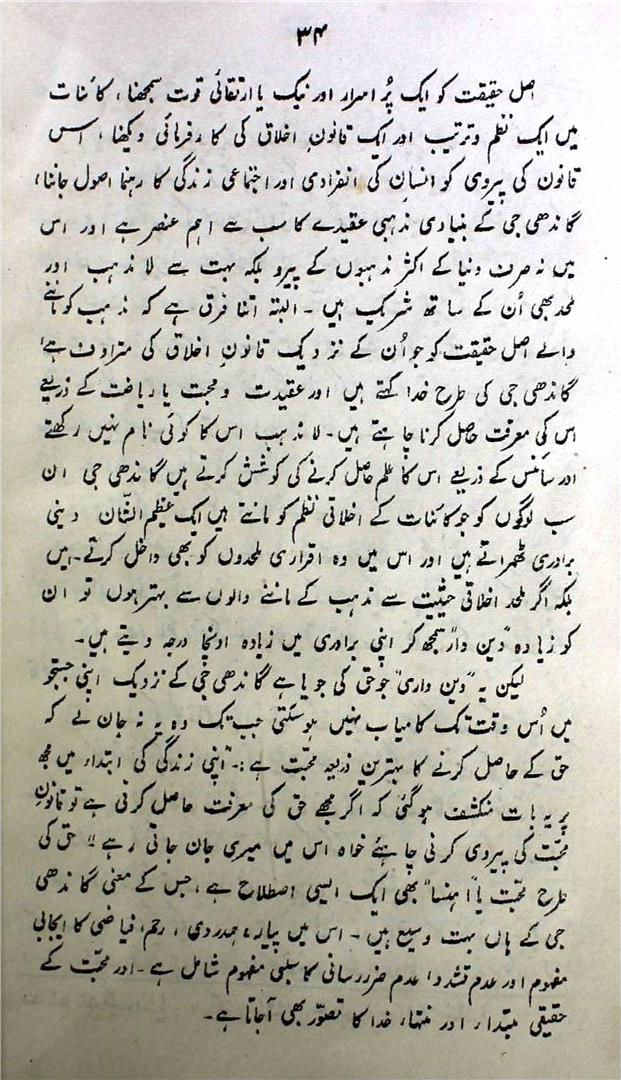 ۳۴
اصل حقیقت کو ایک پُر اسرار اور نیک یا ارتقائی قوت سمجھنا، کائنات
میں ایک نظم وترتیب اور ایک قانونِ اخلاق کی کارفرمائی دیکھنا، اس
قانون کی پیروی کو انسان کی انفرادی اور اجتماعی زندگی کا رہنما اصول جاننا،
گاندھی جی کے بنیادی مذہبی عقیدے کا سب سے اہم عنصر ہے اور اس
میں نہ صرف دنیا کے اکثر مذہبوں کے پیرو بلکہ بہت سے لا مذہب اور
ملحد بھی اُن کے ساتھ شریک ہیں ۔ البتہ اتنا فرق ہے کہ مذہب کو ماننے
والے اصل حقیقت کو جو اُن کے نزدیک قانونِ اخلاق کی مترادف ہے
گاندھی جی کی طرح خدا کہتے ہیں اور عقیدت و محبت یا ریاضت کے ذریعے
اس کی معرفت حاصل کرنا چاہتے ہیں۔ لا مذہب اس کا کوئی نام نہیں رکھتے
اور سائنس کے ذریعے اس کا علم حاصل کرنے کی کوشش کرتے ہیں گاندھی جی ان
سب لوگوں کو جو کائنات کے اخلاقی نظم کو مانتے ہیں ایک عظیم الشّان دینی
برادری ٹھہراتے ہیں اور اس میں وہ اقراری ملحدوں کو بھی داخل کرتے ہیں
بلکہ اگر ملحد اخلاقی حیثیت سے مذہب کے ماننے والوں سے بہتر ہوں تو ان
کو زیادہ "دین دار" سمجھ کر اپنی برادری میں زیادہ اونچا درجہ دیتے ہیں۔
لیکن یہ "دین داری" جو حق کی جویا ہے گاندھی جی کے نزدیک اپنی جستجو
میں اُس وقت تک کامیاب نہیں ہوسکتی جب تک وہ یہ نہ جان لے کہ
حق کے حاصل کرنے کا بہترین ذریعہ محبّت ہے :۔ "اپنی زندگی کی ابتداء میں مجھ
پر یہ بات منکشف ہو گئی کہ اگر مجھے حق کی معرفت حاصل کرنی ہے تو قانونِ
محبّت کی پیروی کرنی چاہیئے خواہ اس میں میری جان جاتی رہے" حق کی
طرح محبّت یا "اہنسا" بھی ایک ایسی اصطلاح ہے، جس کے معنی گاندھی
جی کے ہاں بہت وسیع ہیں ۔ اس میں پیار، ہمدردی، رحم، فیاضی کا ایجابی
مفہوم اور عدم تشدد یا عدم ضرر رسانی کا سلبی مفہوم شامل ہے ۔ اور محبّت کے
حقیقی مبتداء اور منتہا، خدا کا تصوّر بھی آ جاتا ہے ۔